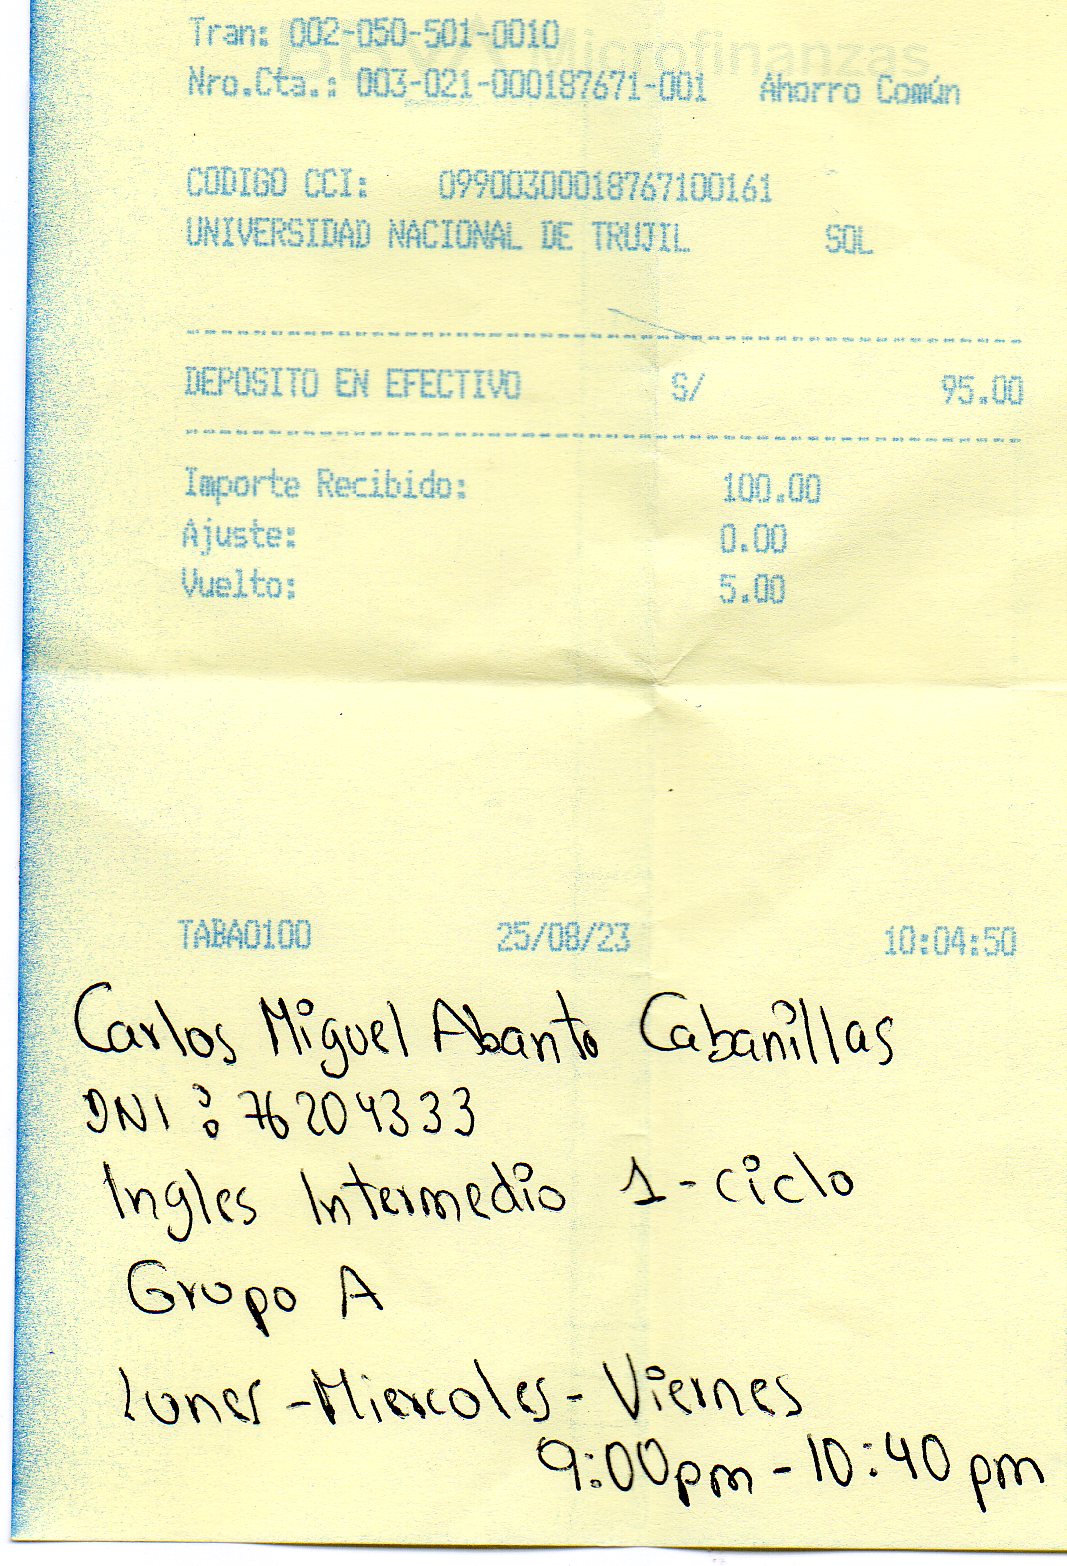 Tran: 002-050-501-0010
Microfinanzas
Nro.Cta.: 003-021-000187671-001 Ahorro Común
CODIGO CCI: 09900300018767100161
UNIVERSIDAD NACIONAL DE TRUJIL SOL
DEPOSITO EN EFECTIVO S/ 95.00
Importe Recibido: 100.00
Ajuste: 0.00
Vuelto: 5.00
TABA0100 25/08/23 10:04:50
Carlos Miguel Abanto Cabanillas
DNI : 76204333
Ingles Intermedio 1-ciclo
Grupo A
Lunes - Miercoles - Viernes
9:00pm - 10:40 pm